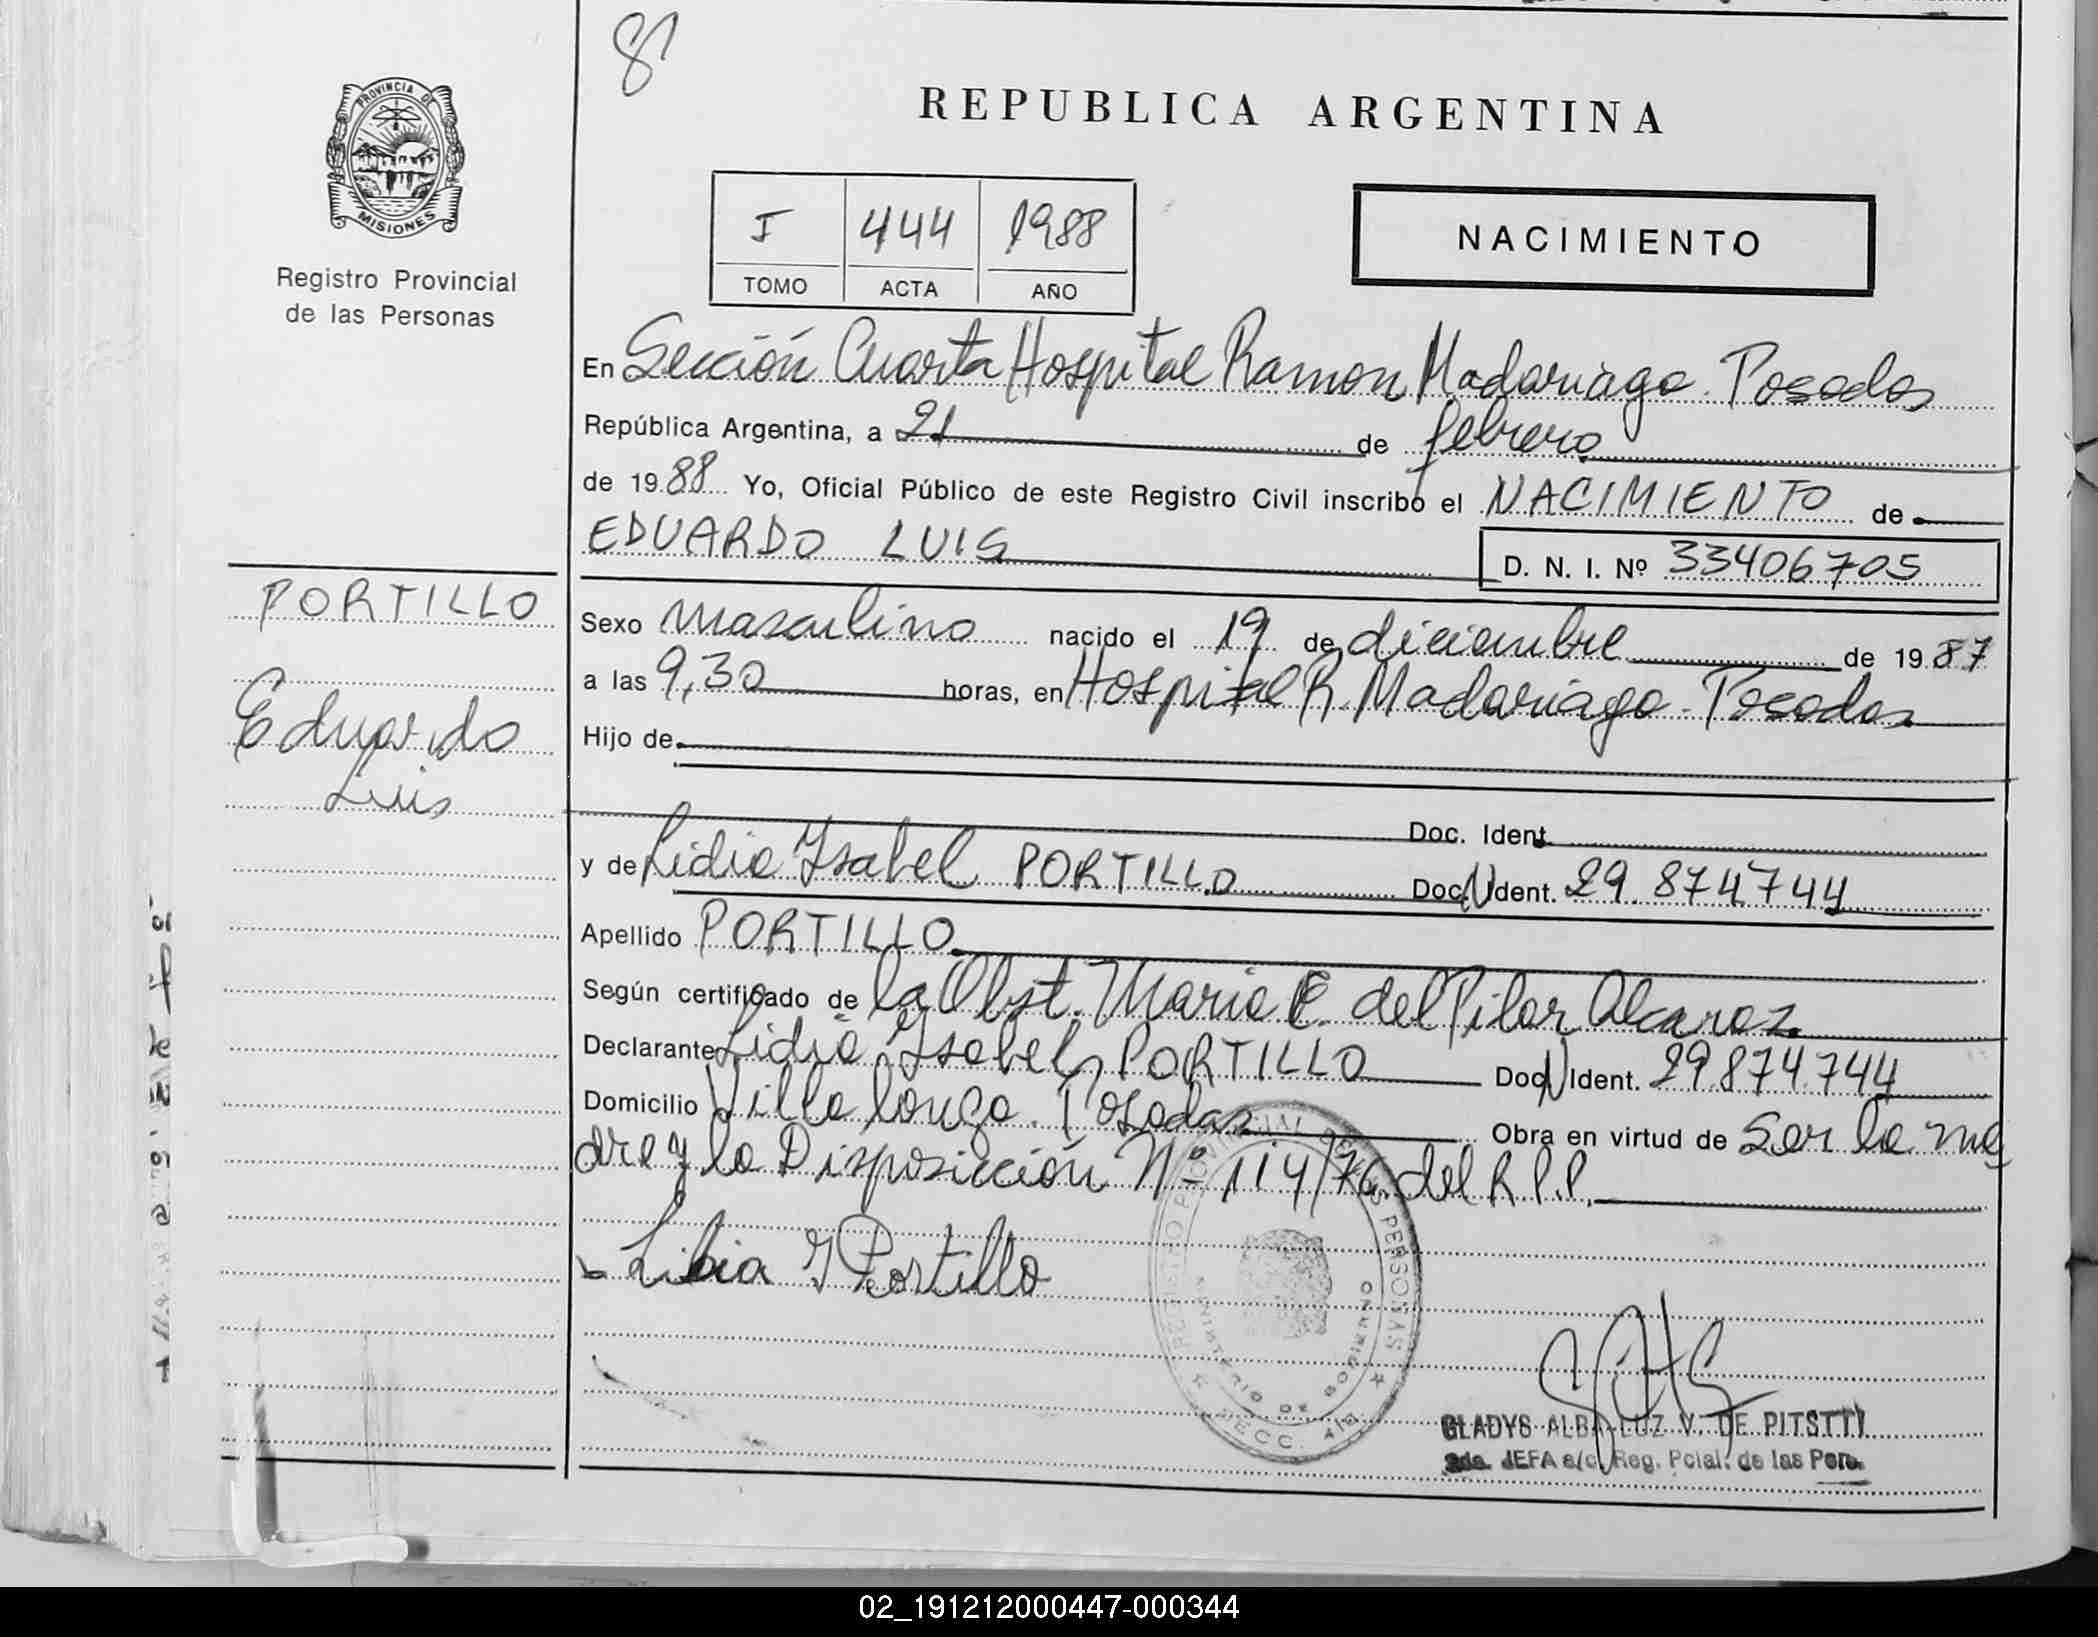 8
PROVINCIA DE
MISIONES
Registro Provincial
de las Personas
REPUBLICA ARGENTINA
I 444 1988
TOMO ACTA AÑO
NACIMIENTO
En Sección Cuarta Hospital Ramon Madariaga. Posadas
República Argentina, a 21 de febrero
de 1988 Yo, Oficial Público de este Registro Civil inscribo el NACIMIENTO de
EDUARDO LUIS D. N. I. Nº 33406705
PORTILLO
Eduardo
Luis
Sexo masculino nacido el 19 de diciembre de 1987
a las 9,30 horas, en Hospital R. Madariaga. Posadas
Hijo de
Doc. Ident.
y de Lidia Ysabel PORTILLO Doc. N Ident. 29.874744
Apellido PORTILLO
Según certificado de la Obst. Maria E. del Pilar Alcaraz
Declarante Lidia Ysabel PORTILLO Doc N Ident. 29.874.744
Domicilio Villa longa. Posadas Obra en virtud de Ser la ma
dre y la Disposición Nº 114/76 del R.P.P.
Libia Y Portillo
REGISTRO PROVINCIAL DE LAS PERSONAS
MINISTERIO DE GOBIERNO
SECC. 4ta
GLADYS ALBA LUZ V. DE PITSTTI
2da. JEFA a/c. Reg. Pcial. de las Pers.
02_191212000447-000344